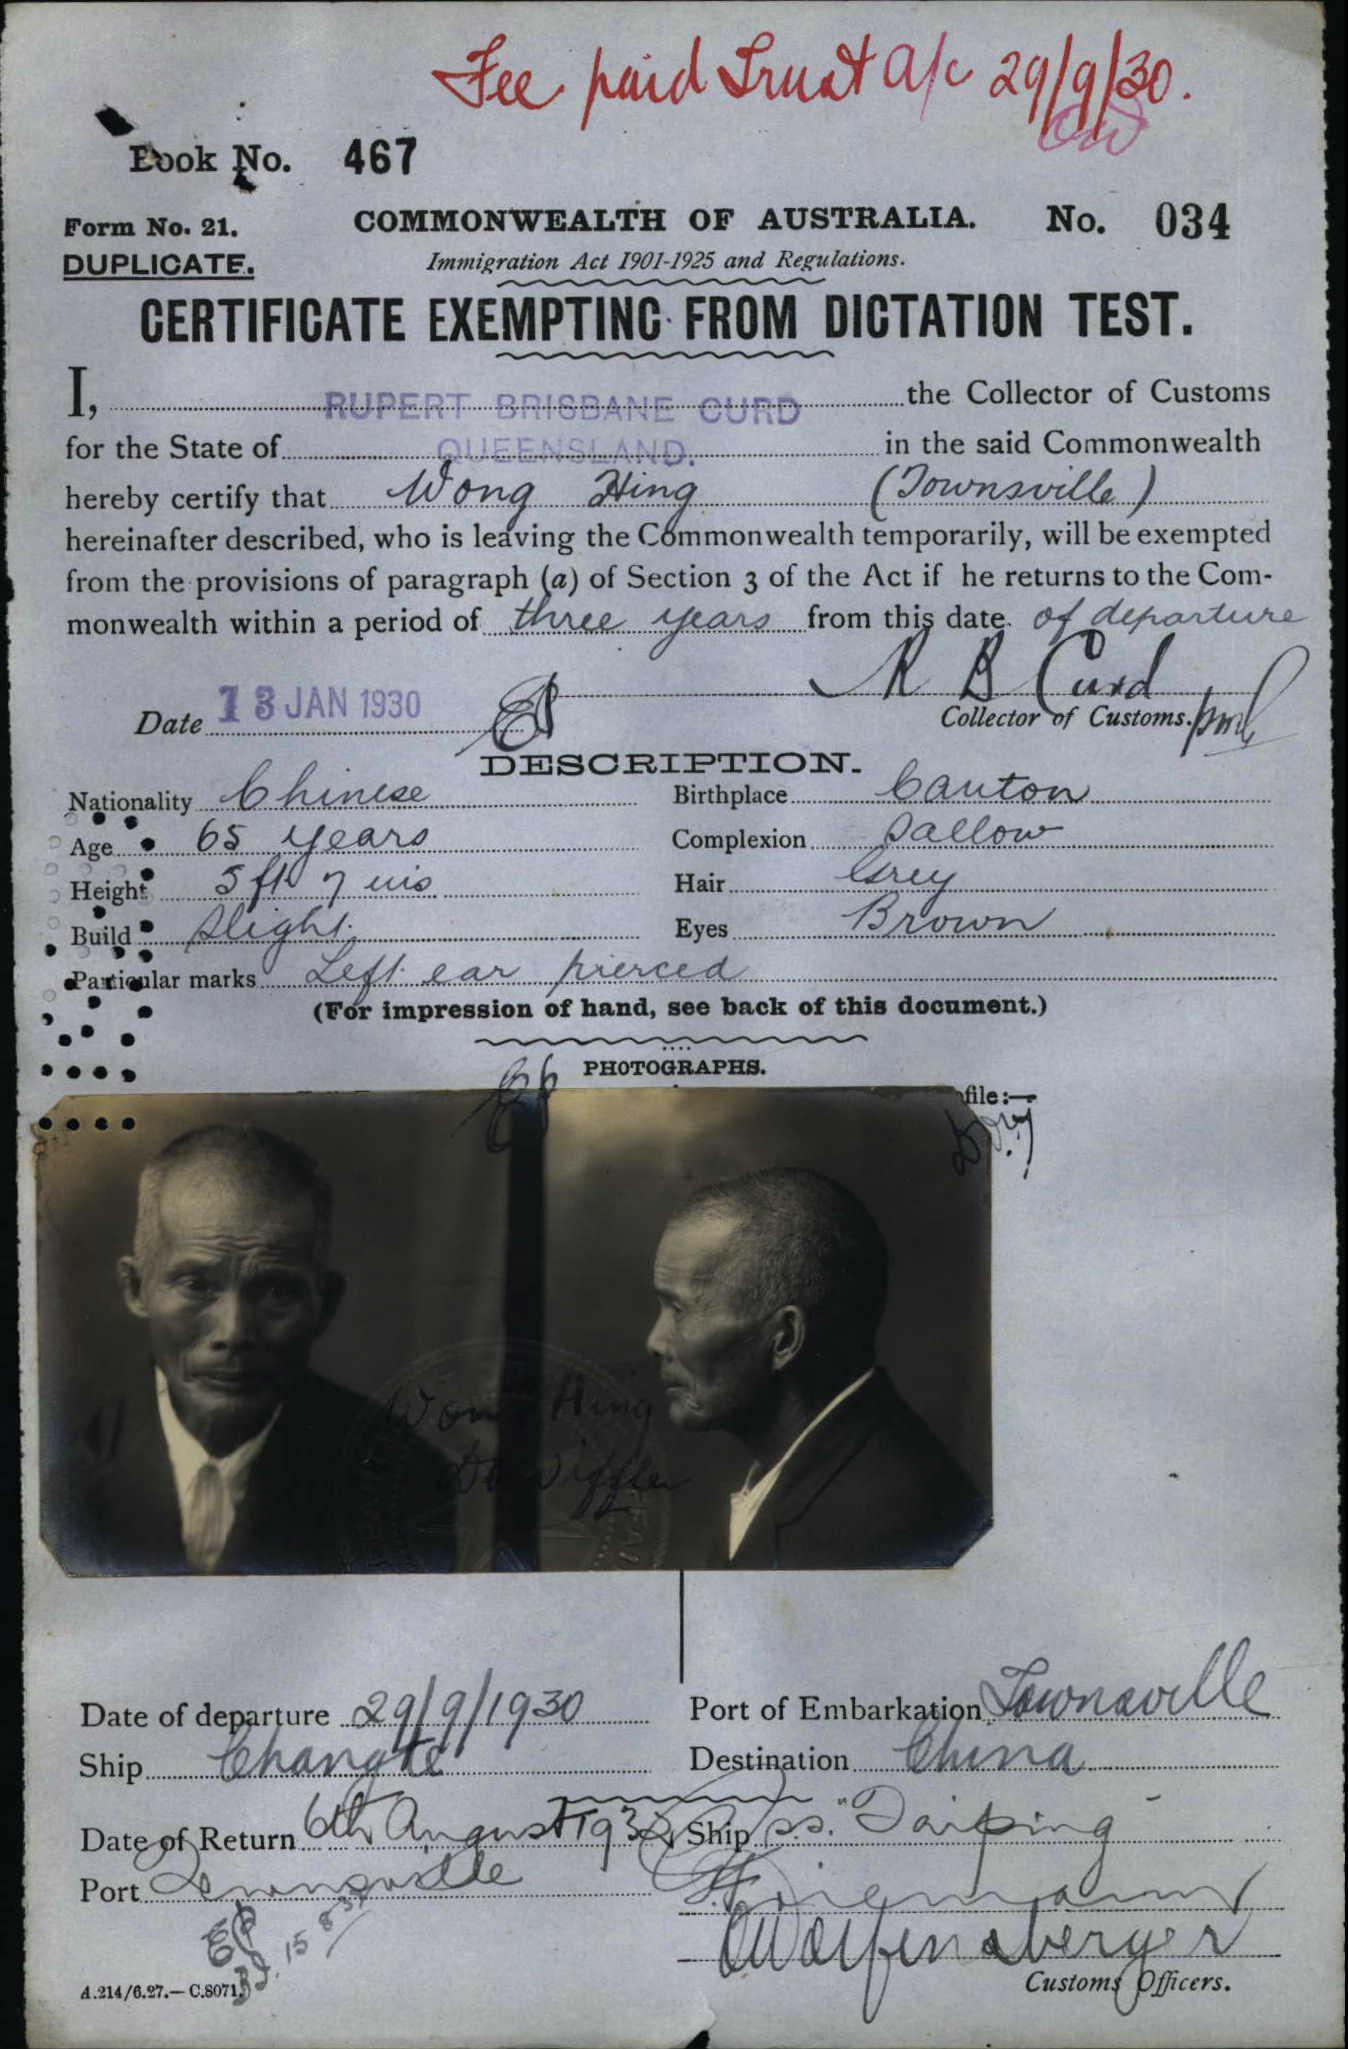 Fee paid Trust a/c 29/9/30.
OW
Book No. 467
Form No. 21. COMMONWEALTH OF AUSTRALIA. No. 034
DUPLICATE. Immigration Act 1901-1925 and Regulations.
CERTIFICATE EXEMPTING FROM DICTATION TEST.
I, RUPERT BRISBANE CURD the Collector of Customs
for the State of QUEENSLAND. in the said Commonwealth
hereby certify that Wong Hing (Townsville)
hereinafter described, who is leaving the Commonwealth temporarily, will be exempted
from the provisions of paragraph (a) of Section 3 of the Act if he returns to the Com-
monwealth within a period of three years from this date of departure
R B Curd
Date 13 JAN 1930 Collector of Customs.
DESCRIPTION.
Nationality Chinese Birthplace Canton
Age 65 years Complexion Sallow
Height 5 ft 7 ins Hair Grey
Build Slight Eyes Brown
Particular marks Left ear pierced
(For impression of hand, see back of this document.)
PHOTOGRAPHS.
file:—
Wong Hing
Date of departure 29/9/1930 Port of Embarkation Townsville
Ship Changte Destination China
Date of Return 6th August 1932 Ship s.s. "Taiping"
Port Townsville
15 8 32
Customs Officers.
A.214/6.27.—C.8071.